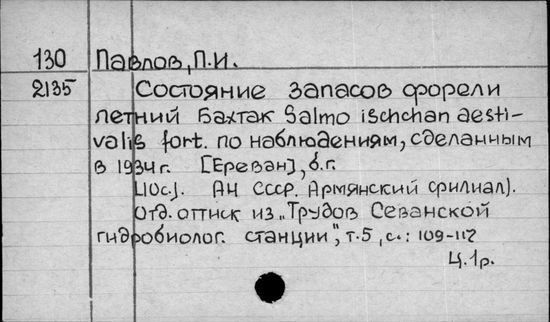 130 Павлов, П.И.
2135 Состояние запасов форели
летний Бахтак Salmo ischchan aesti-
valis fort. по наблюдениям, сделанным
в 1934 г. [Ереван], б.г.
110с]. АН СССР. Армянский филиал).
Отд. оттиск из „Трудов Севанской
гидробиолог. станции", т.5, с.: 109-112
Ц. 1р.